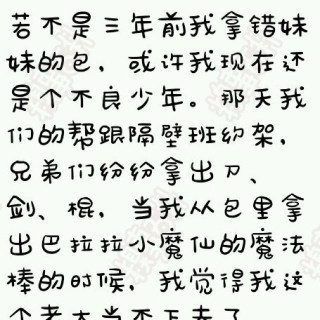 若不是三年前我拿错妹
妹的包，或许我现在还
是个不良少年。那天我
们的帮跟隔壁班约架，
兄弟们纷纷拿出刀、
剑、棍，当我从包里拿
出巴拉拉小魔仙的魔法
棒的时候，我觉得我这
个老大当不下去了